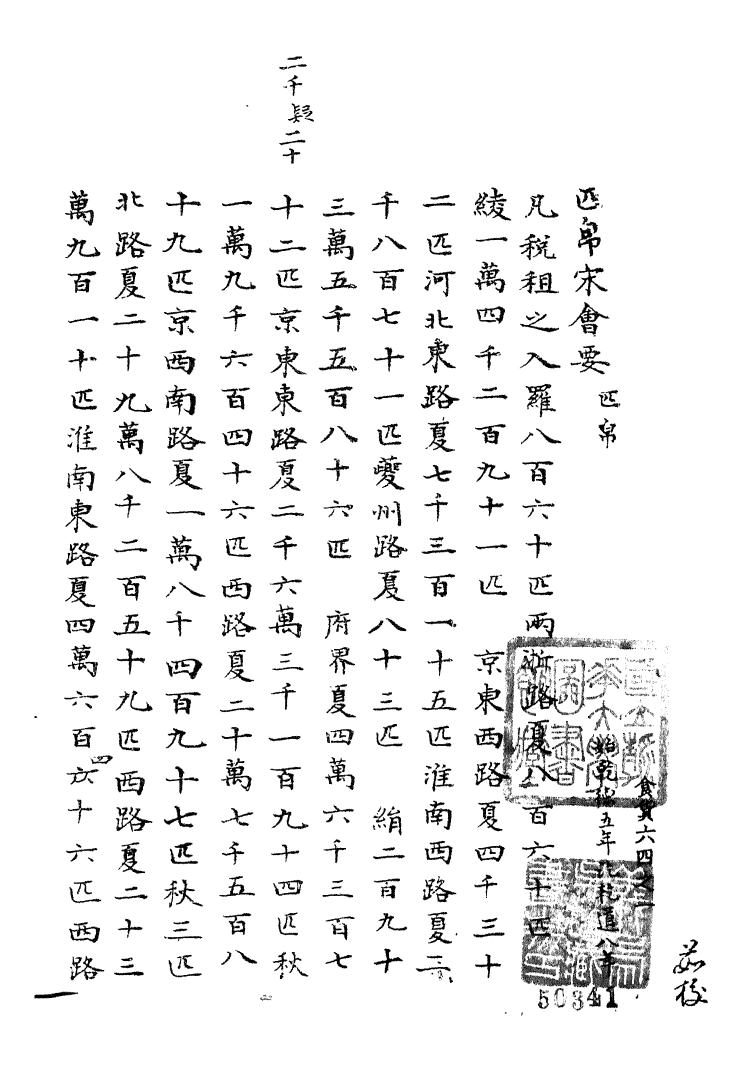 匹帛宋會要 匹帛
食貨六四之一
始乾德五年訖乾道八年
凡稅租之入羅八百六十匹兩浙路夏八百六十匹
綾一萬四千二百九十一匹 京東西路夏四千三十
二匹河北東路夏七千三百一十五匹淮南西路夏二
千八百七十一匹夔州路夏八十三匹 絹二百九十
三萬五千五百八十六匹 府界夏四萬六千三百七
二千疑二十
十二匹京東東路夏二千六萬三千一百九十四匹秋
一萬九千六百四十六匹西路夏二十萬七千五百八
十九匹京西南路夏一萬八千四百九十七匹秋三匹
北路夏二十九萬八千二百五十九匹西路夏二十三
萬九百一十匹淮南東路夏四萬六百六四十六匹西路
50341
茹校